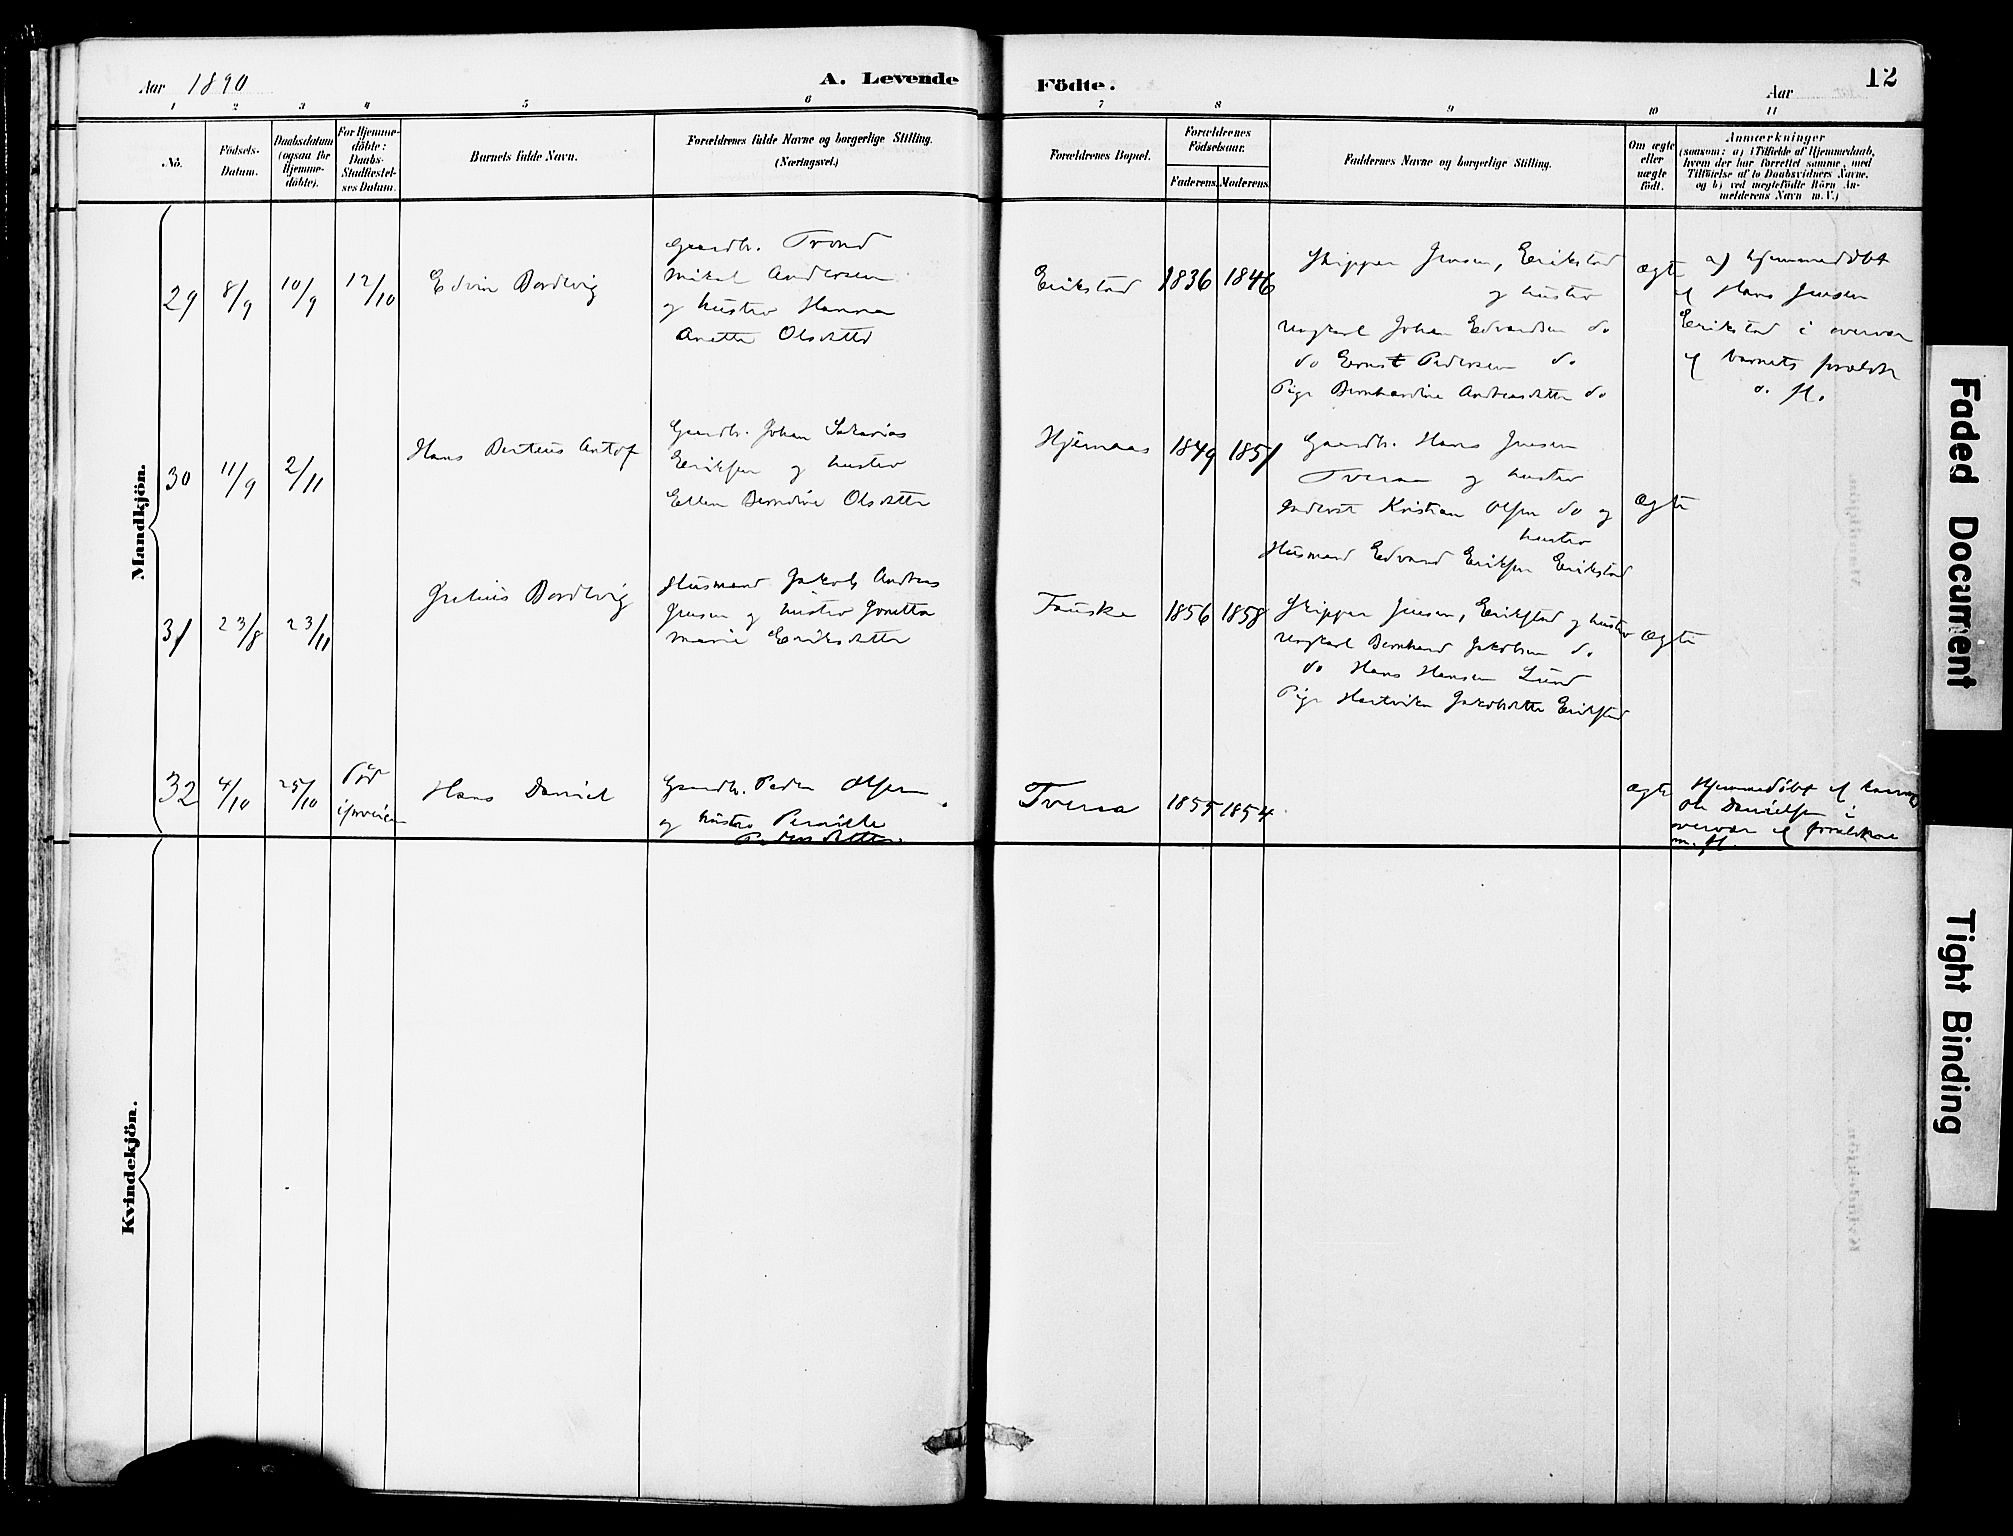 Aar 1890
A. Levende
Födte.
12
Aar
1 2 3 4 5 6 7 8 9 10 11
No.
Födsels-
Datum.
Daabsdatum
(ogsaa for
Hjemme-
döbte).
For Hjemme-
döbte:
Daabs-
Stadfæstel-
ses Datum.
Barnets fulde Navn.
Forældrenes fulde Navne og borgerlige Stilling.
(Næringsvei.)
Forældrenes Bopæl.
Forældrenes
Födselsaar.
Faderens. Moderens.
Faddernes Navne og borgerlige Stilling.
Om ægte
eller
uægte
födt.
Anmærkninger
(saasom: a) i Tilfælde af Hjemmedaab,
hvem der har forrettet samme, med
Tilföielse af to Daabsvidners Navne.
og b) ved uegtefödte Börn An-
melderens Navn m.V.)
Mandkjön.
29
8/9
10/9
12/10
Edvin Bordevig
Gaardbr. Trond
Mikal Andersen
og hustro Hanna
Anette Olsdatter
Erikstad
1836
1846
Skipper Jensen, Erikstad
og hustro
Ungkarl Johan Edvardsen do
do Ernst Pedersen do
Pige Bernhardine Andreasdatter do
ægte
a) hjemmedøbt
af Hans Jensen
Erikstad i overvær
af barnets forældre
o. fl.
30
11/9
2/11
Hans Berteus Antof
Gaardb. Johan Sakarias
Eriksen og hustro
Ellen Berndine Olsdatter
Hjemaas
1849
1851
Gaardb. Hans Jensen
Tveraa og hustro
Inderst Kristian Olsen do og
hustro
Husmand Edvard Eriksen Erikstad
ægte
31
23/8
23/11
Bordevig
Husmand Jakob Andreas
Jensen og hustro Jonetta
Marie Eriksdatter
Fauske
1856
1858
Skipper Jensen, Erikstad og hustro
Ungkarl Bernhard Jakobsen do
do Hans Hansen Lund
Pige Hartvika Jakobsdatter Erikstad
ægte
32
4/10
25/10
Død
iforveien
Hans Daniel
Gaardb. Peder Olsen
og hustro Pernille
Pedersdatter
Tveraa
1855
1854
ægte
Hjemmedøbt af
Ole Danielsen i
overvær af forældrene
m. fl.
Kvindekjön.
Faded Document
Tight Binding